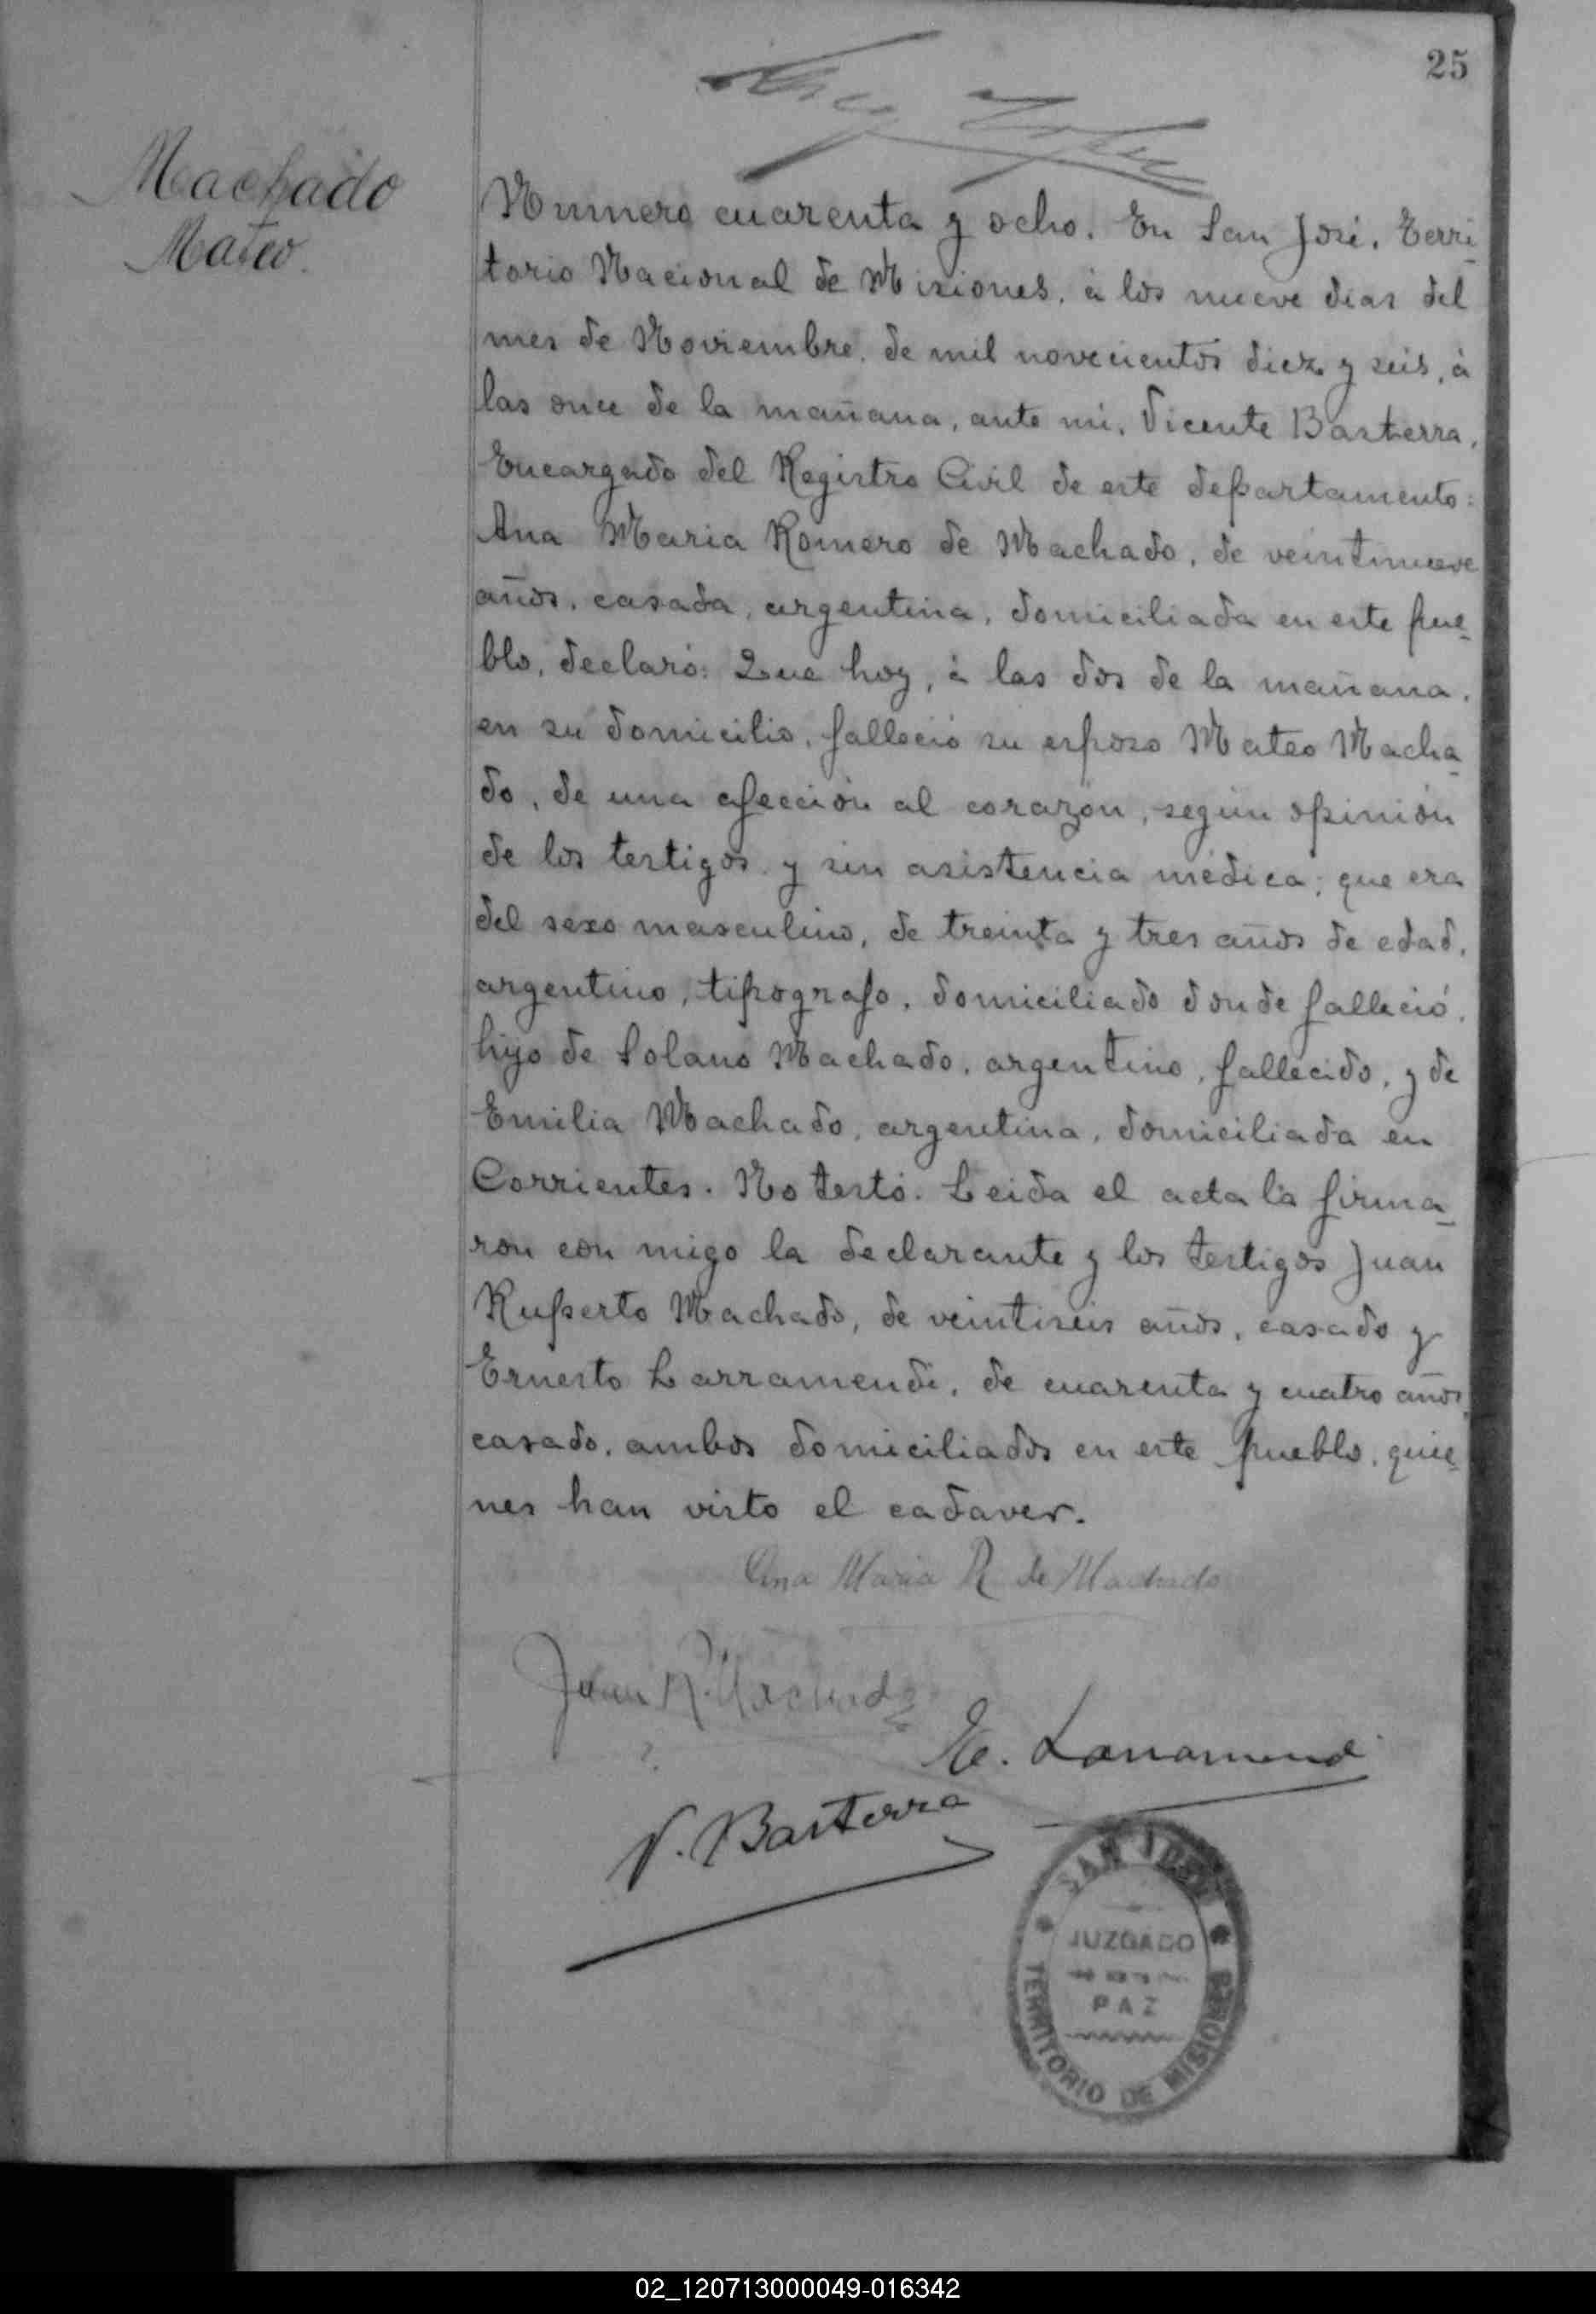 25
Machado
Mateo.
Numero cuarenta y ocho. En San José, Terri-
torio Nacional de Misiones, à los nueve dias del
mes de Noviembre, de mil novecientos diez y seis, à
las once de la mañana, ante mi, Vicente Basterra,
Encargado del Registro Civil de este departamento:
Ana Maria Romero de Machado, de veintinueve
años, casada, argentina, domiciliada en este pue-
blo, declaró: Que hoy, à las dos de la mañana,
en su domicilio, falleció su esposo Mateo Macha-
do, de una afección al corazón, según opinión
de los testigos y sin asistencia médica; que era
del sexo masculino, de treinta y tres años de edad,
argentino, tipografo, domiciliado donde falleció,
hijo de Solano Machado, argentino, fallecido, y de
Emilia Machado, argentina, domiciliada en
Corrientes. No testó. Leida el acta la firma-
ron con migo la declarante y los testigos Juan
Ruperto Machado, de veintiseis años, casado y
Ernesto Larramendi, de cuarenta y cuatro años,
casado, ambos domiciliados en este pueblo, quie-
nes han visto el cadaver.
Ana Maria R de Machado
Juan R. Machado
E. Larramendi
V. Basterra
SAN JOSÉ
JUZGADO
PAZ
TERRITORIO DE MISIONES
02_120713000049-016342